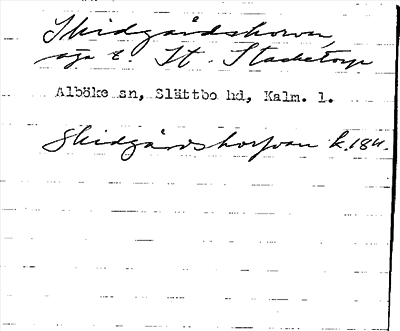 Skidgårdshorvan,
äga t. St. Stacketorp
Alböke sn, Slättbo hd, Kalm. l.
Skidgårdshorfvan k. 184.